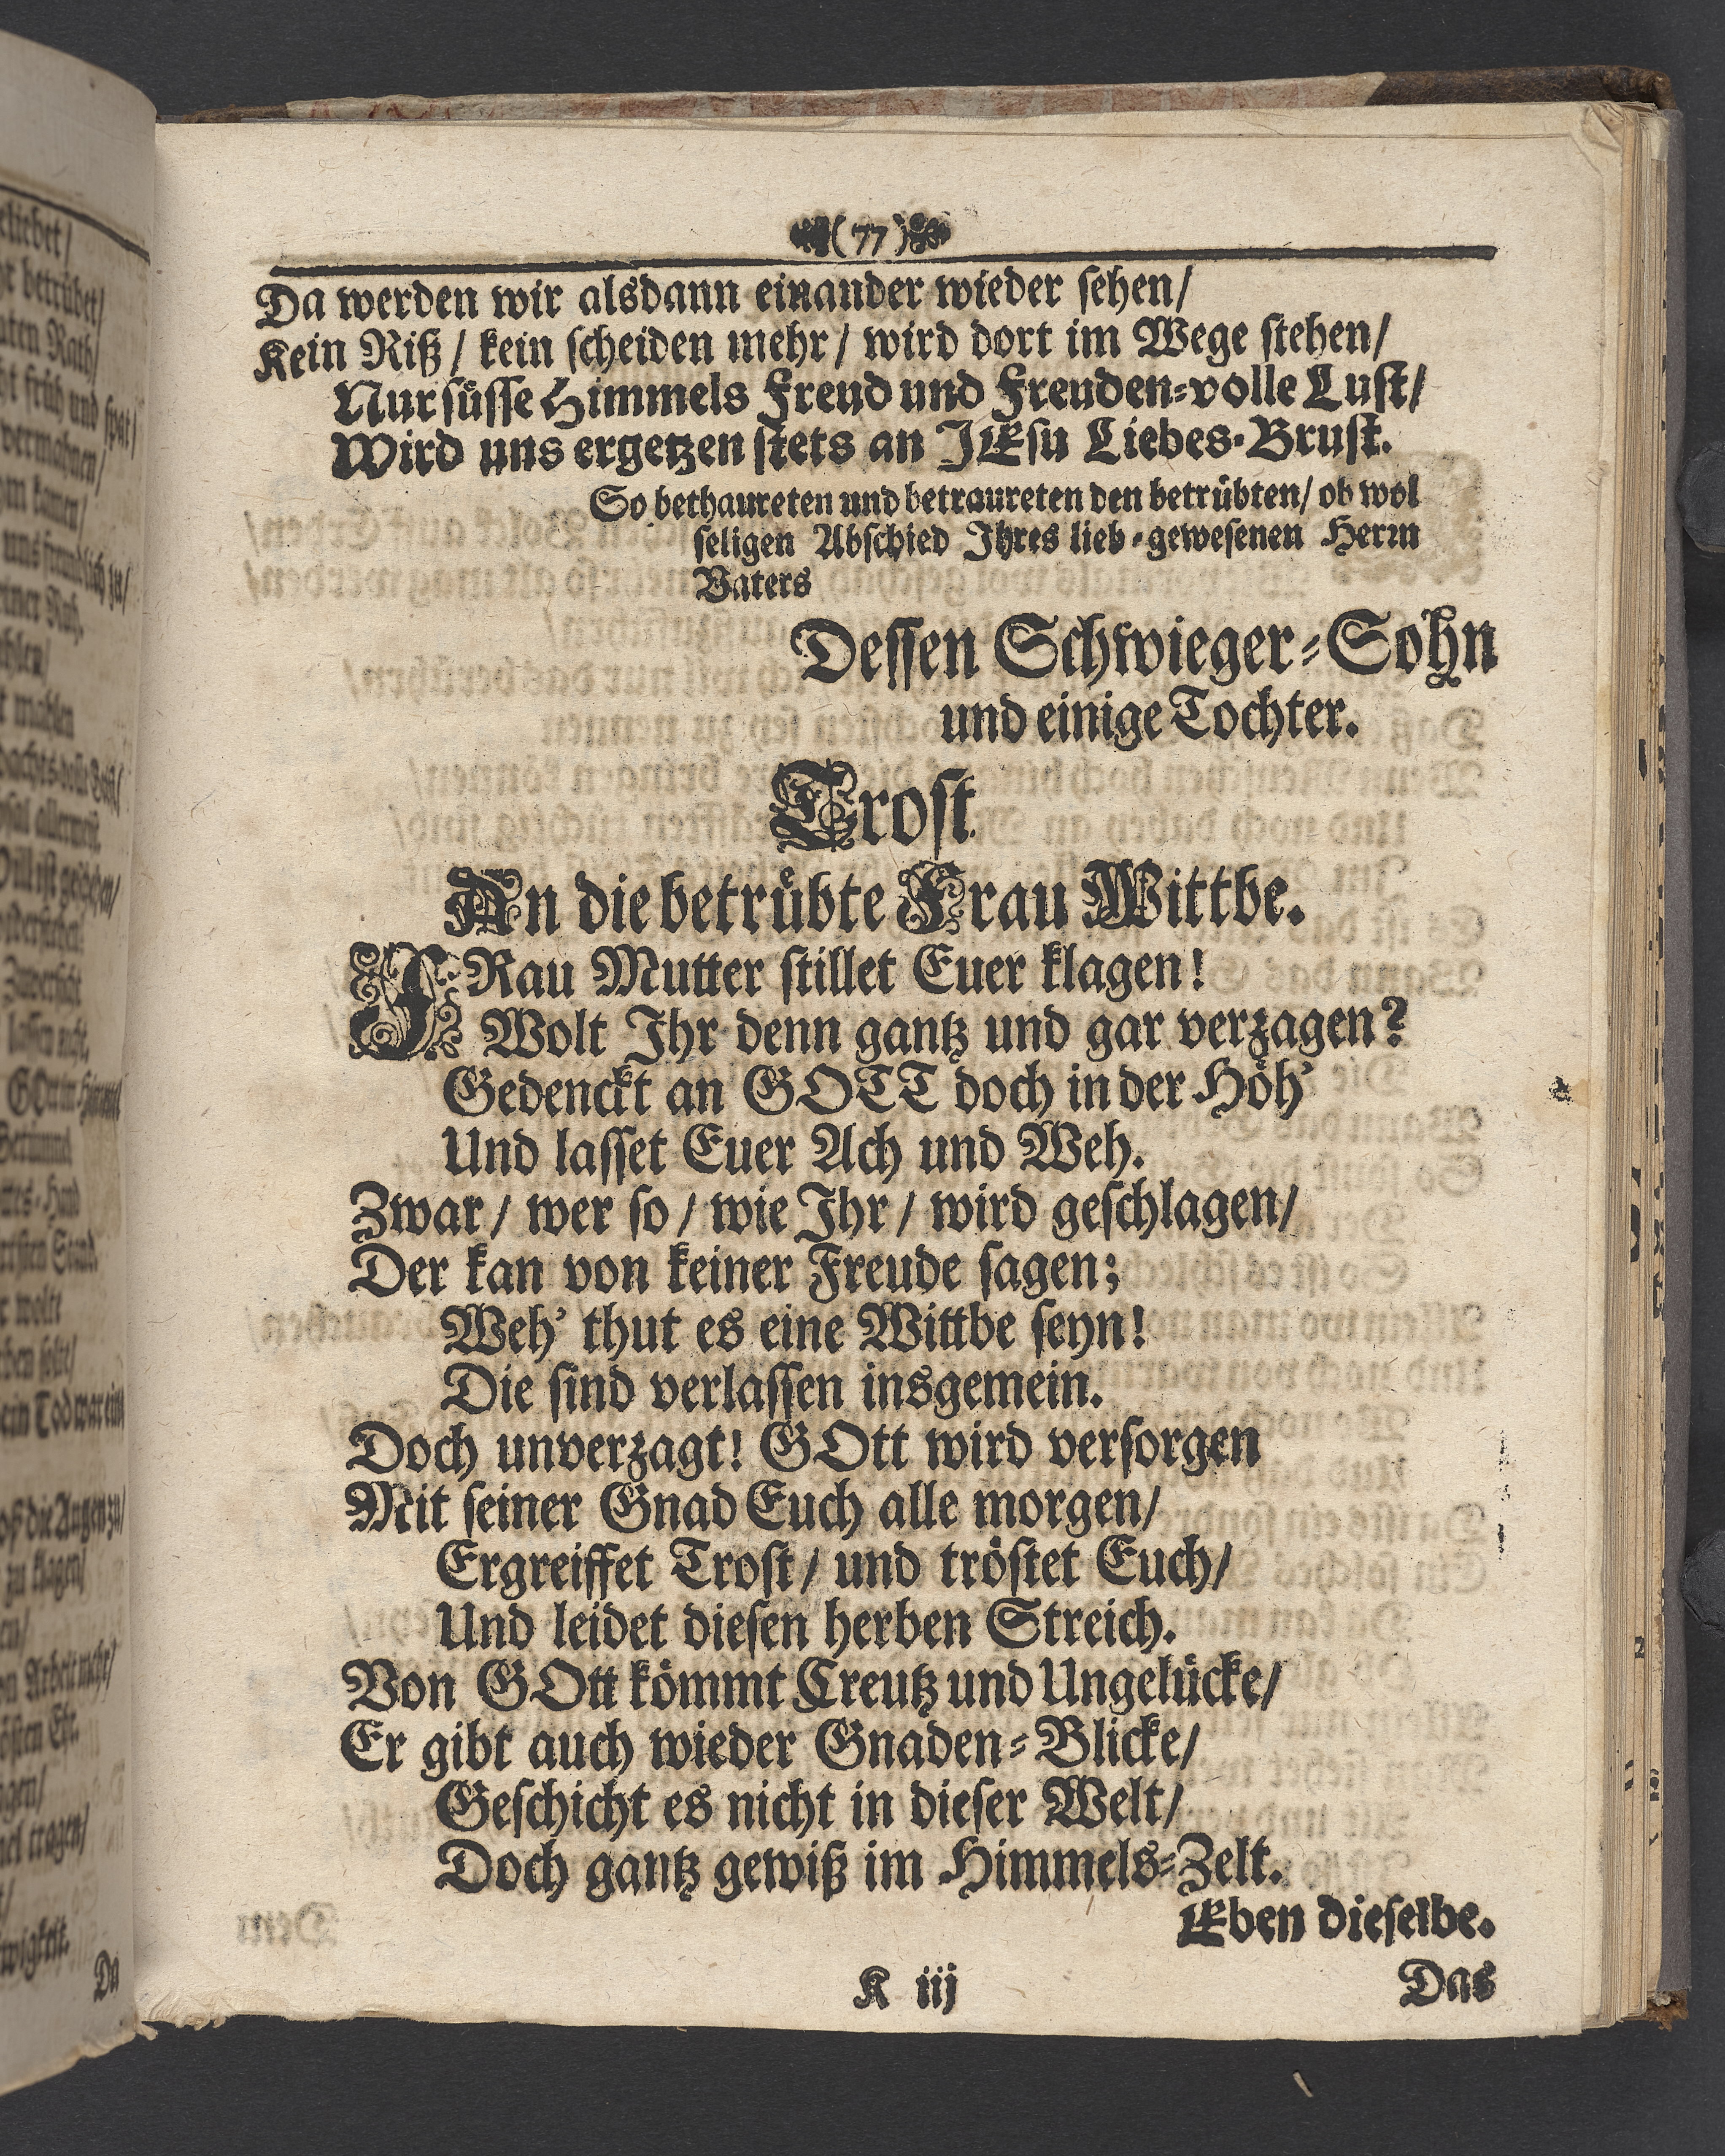 (77)
Da werden wir alsdann einander wieder sehen/
Kein Riß/ kein scheiden mehr/ wird dort im Wege stehen/
Nur süsse Himmels Freud und Freuden-volle Lust/
Wird uns ergetzen stets an JEsu Liebes-Brust.
So bethaureten und betraureten den betrübten/ ob wol
seligen Abschied Ihres lieb-gewesenen Herrn
Vaters
Dessen Schwieger-Sohn
und einige Tochter.
Trost
An die betrübte Frau Wittbe.
FRau Mutter stillet Euer klagen!
Wolt Ihr denn gantz und gar verzagen?
Gedenckt an GOTT doch in der Höh'
Und lasset Euer Ach und Weh.
Zwar/ wer so/ wie Ihr/ wird geschlagen/
Der kan von keiner Freude sagen;
Weh' thut es eine Wittbe seyn!
Die sind verlassen insgemein.
Doch unverzagt! GOtt wird versorgen
Mit seiner Gnad Euch alle morgen/
Ergreiffet Trost/ und tröstet Euch/
Und leidet diesen herben Streich.
Von GOtt kömmt Creutz und Ungelücke/
Er gibt auch wieder Gnaden-Blicke/
Geschicht es nicht in dieser Welt/
Doch gantz gewiß im Himmels-Zelt.
Eben dieselbe.
K iij
Das